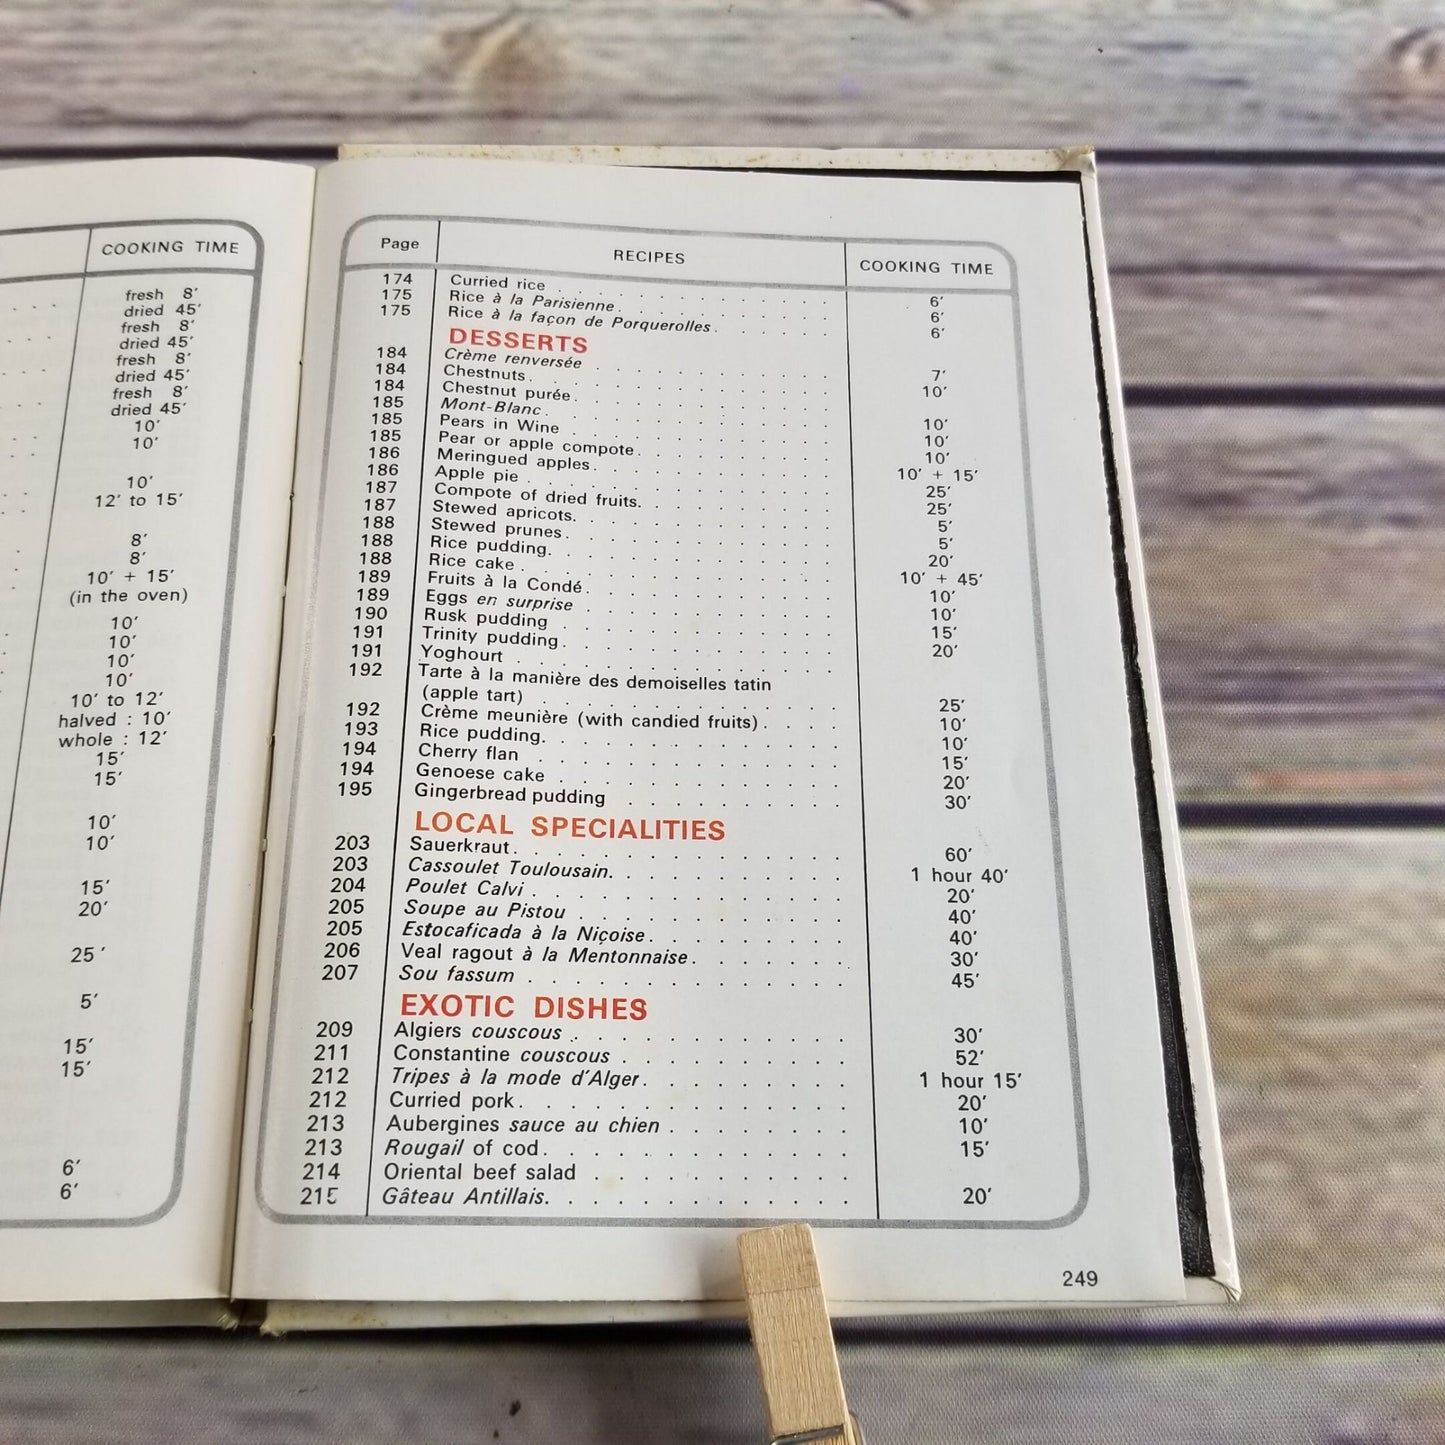 COOKING TIME
fresh 8'
dried 45'
fresh 8'
dried 45'
fresh 8'
dried 45'
fresh 8'
dried 45'
10'
10'
10'
12' to 15'
8'
8'
10' + 15'
(in the oven)
10'
10'
10'
10'
10' to 12'
halved : 10'
whole : 12'
15'
15'
10'
10'
15'
20'
25'
5'
15'
15'
6'
6'
Page RECIPES COOKING TIME
174 Curried rice 6'
175 Rice à la Parisienne 6'
175 Rice à la façon de Porquerolles 6'
DESSERTS
184 Crème renversée 7'
184 Chestnuts 10'
184 Chestnut purée
185 Mont-Blanc 10'
185 Pears in Wine 10'
185 Pear or apple compote 10'
186 Meringued apples 10' + 15'
186 Apple pie 25'
187 Compote of dried fruits 25'
187 Stewed apricots 5'
188 Stewed prunes 5'
188 Rice pudding 20'
188 Rice cake 10' + 45'
189 Fruits à la Condé 10'
189 Eggs en surprise 10'
190 Rusk pudding 15'
191 Trinity pudding 20'
191 Yoghourt
192 Tarte à la manière des demoiselles tatin
(apple tart) 25'
192 Crème meunière (with candied fruits) 10'
193 Rice pudding 10'
194 Cherry flan 15'
194 Genoese cake 20'
195 Gingerbread pudding 30'
LOCAL SPECIALITIES
203 Sauerkraut 60'
203 Cassoulet Toulousain 1 hour 40'
204 Poulet Calvi 20'
205 Soupe au Pistou 40'
205 Estocaficada à la Niçoise 40'
206 Veal ragout à la Mentonnaise 30'
207 Sou fassum 45'
EXOTIC DISHES
209 Algiers couscous 30'
211 Constantine couscous 52'
212 Tripes à la mode d'Alger 1 hour 15'
212 Curried pork 20'
213 Aubergines sauce au chien 10'
213 Rougail of cod 15'
214 Oriental beef salad
215 Gâteau Antillais 20'
249